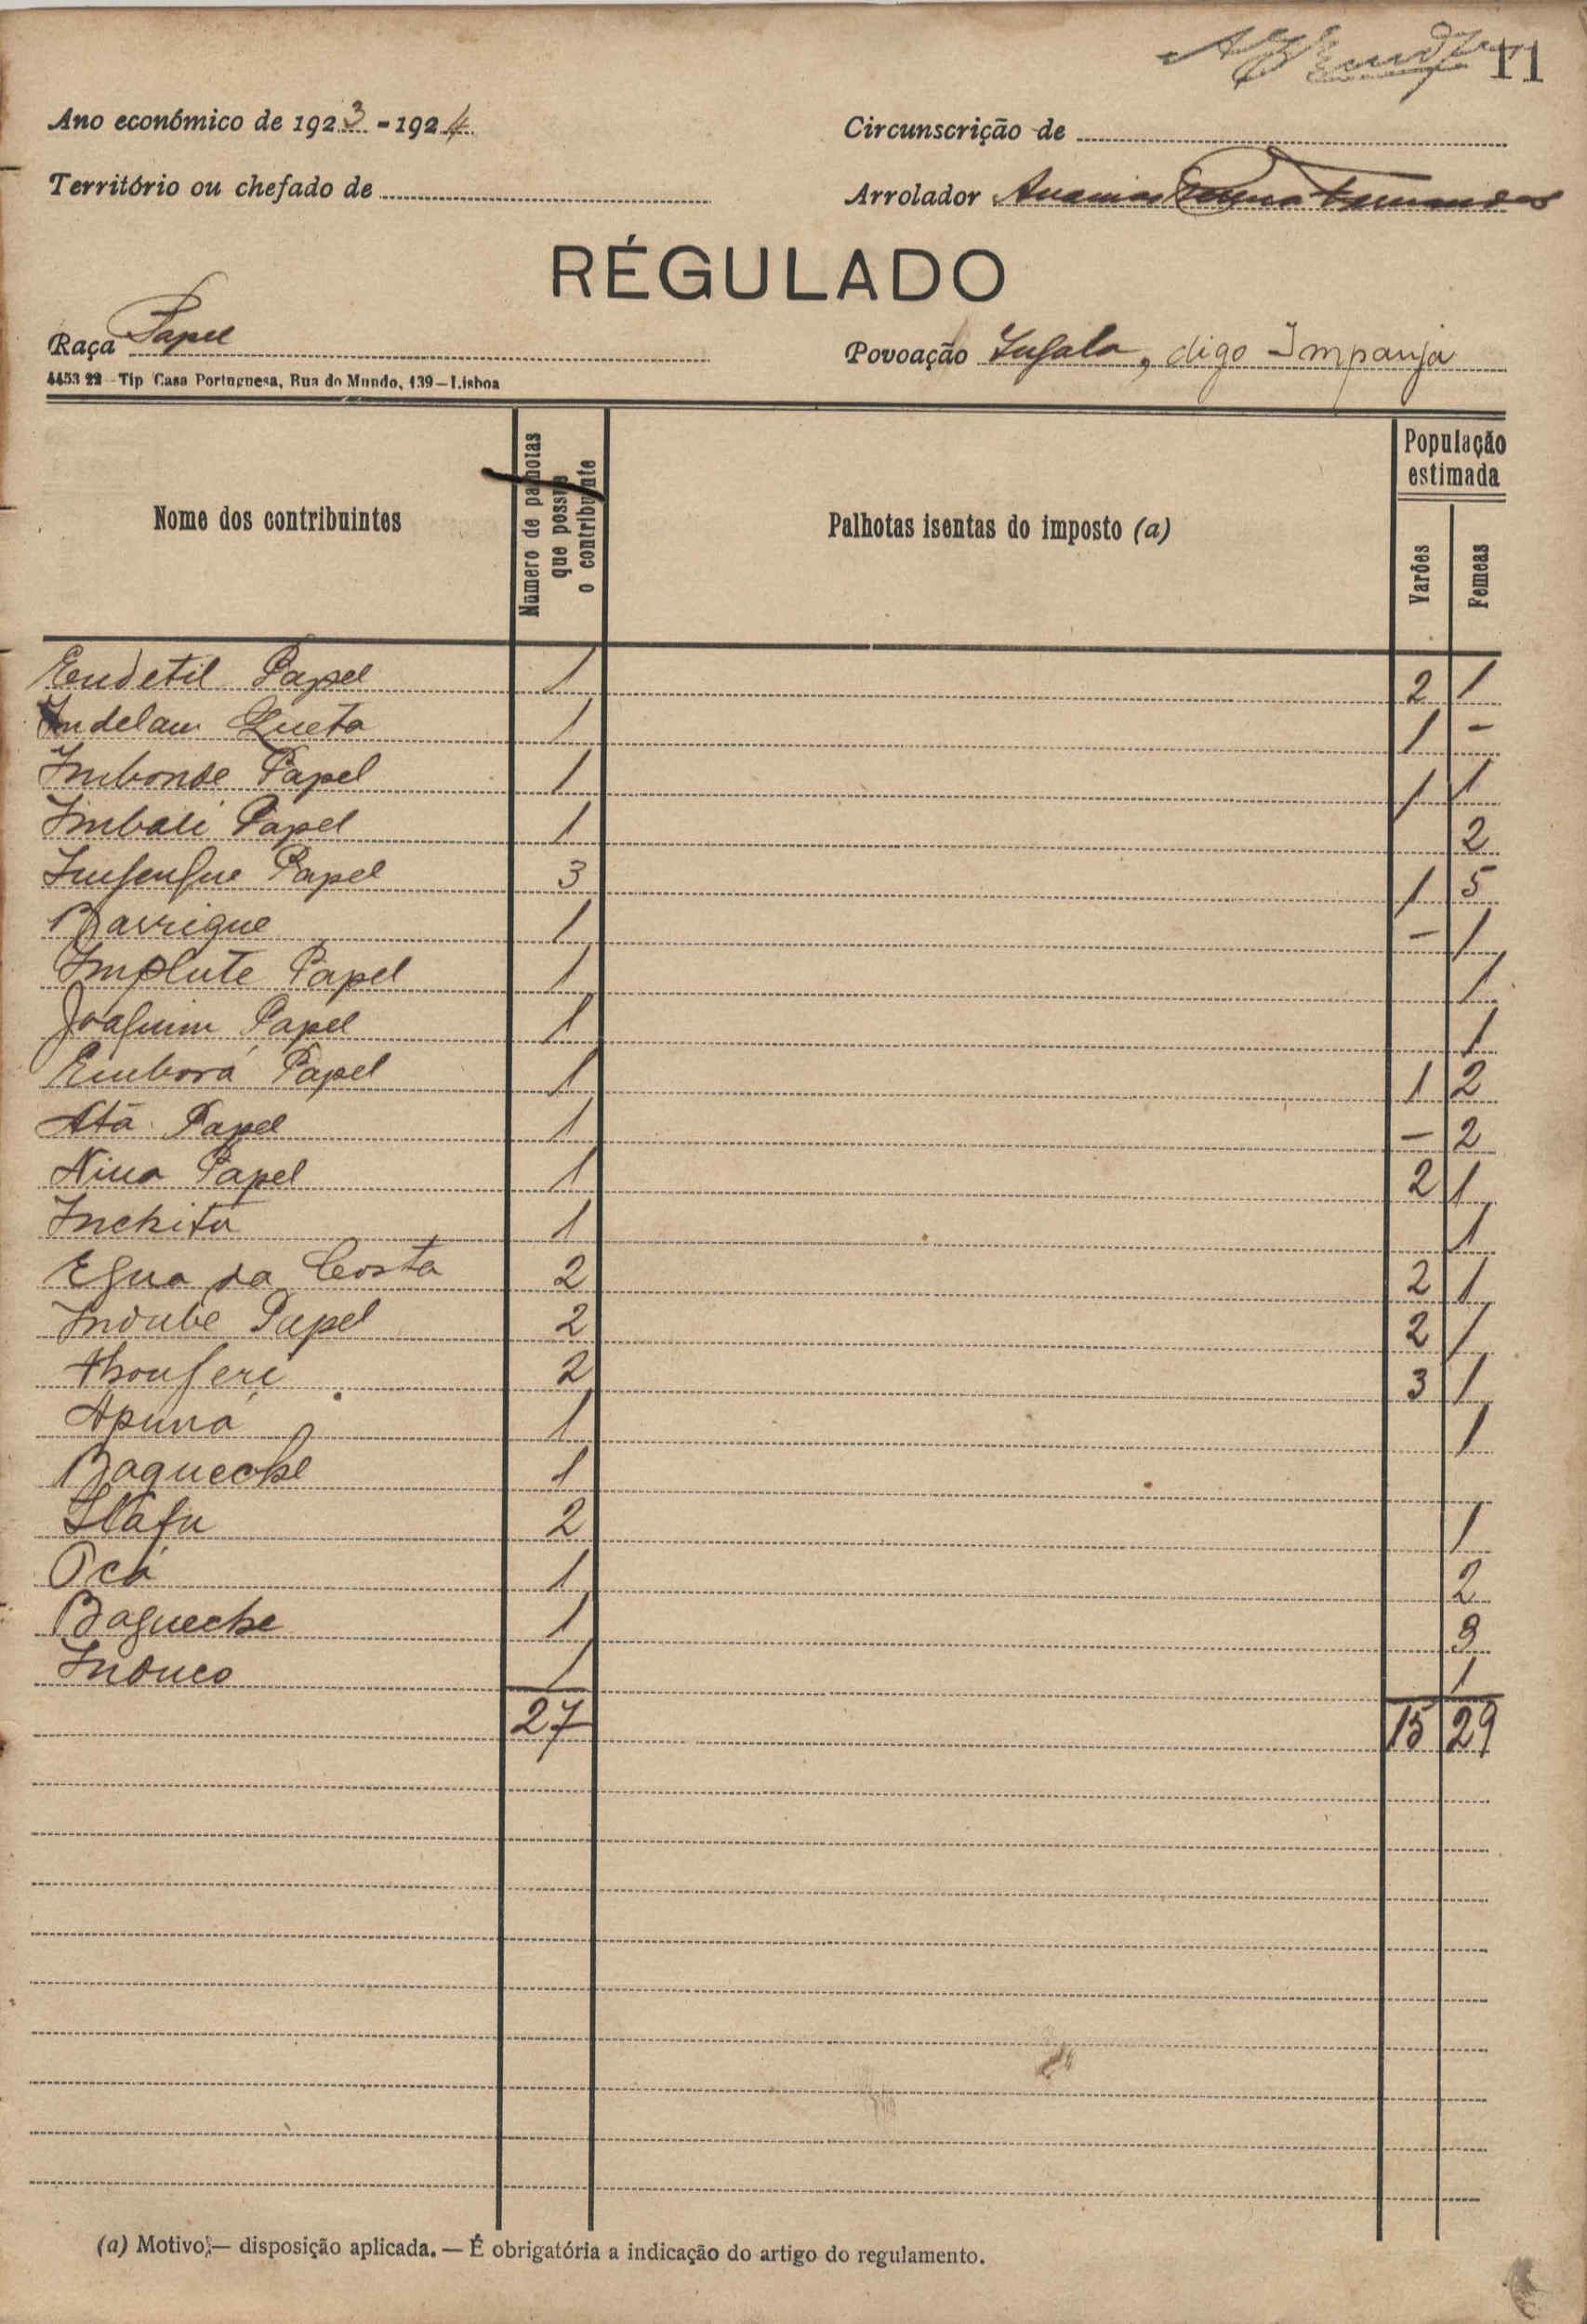 11
Ano económico de 1923-1924
Circunscrição de
Território ou chefado de
Arrolador Fernandes
RÉGULADO
Raça Papel
Povoação digo Impanja
4453 22 - Tip Casa Portuguesa, Rua do Mundo, 139—Lisboa
Nome dos contribuintes
Número de palhotas que possue o contribuinte
Palhotas isentas do imposto (a)
População estimada
Varões
Femeas
Endetil Papel 1 2 1
Indelau Queta 1 1 -
Imbonde Papel 1 1 1
Imbali Papel 1 2
Papel 3 1 5
Barrigue 1 - 1
Implute Papel 1 1
Joaquim Papel 1 1
Emborá Papel 1 1 2
Atá Papel 1 - 2
Nina Papel 1 2 1
Inchita 1 1
Equa da Costa 2 2 1
Indube Papel 2 2 1
2 3 1
Apuná 1 1
Baqueche 1
2 1
Ocá 1 2
Baqueche 1 3
Induco 1 1
27 15 29
(a) Motivo;— disposição aplicada. — É obrigatória a indicação do artigo do regulamento.